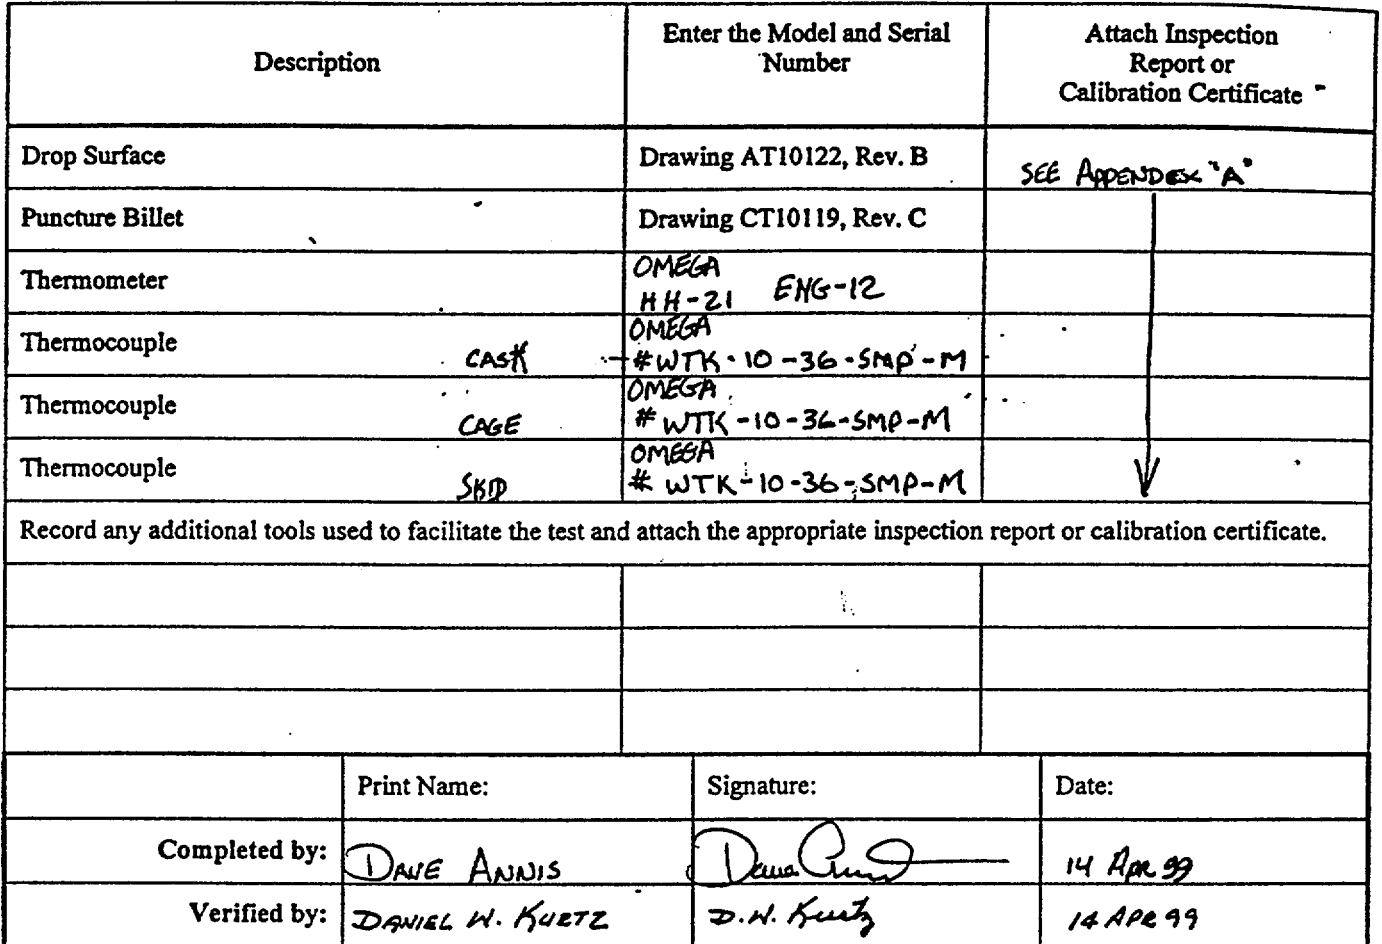 Description
Enter the Model and Serial
Number
Attach Inspection
Report or
Calibration Certificate
Drop Surface
Drawing AT10122, Rev. B
SEE APPENDEX "A"
Puncture Billet
Drawing CT10119, Rev. C
Thermometer
OMEGA
HH-21 ENG-12
Thermocouple
CASK
OMEGA
#WTK-10-36-SMP-M
Thermocouple
CAGE
OMEGA
# WTK-10-36-SMP-M
Thermocouple
SKID
OMEGA
# WTK-10-36-SMP-M
Record any additional tools used to facilitate the test and attach the appropriate inspection report or calibration certificate.
Print Name:
Signature:
Date:
Completed by:
DAVE ANNIS
Dave Annis
14 Apr 99
Verified by:
DANIEL W. KURTZ
D.W. Kurtz
14 APR 99